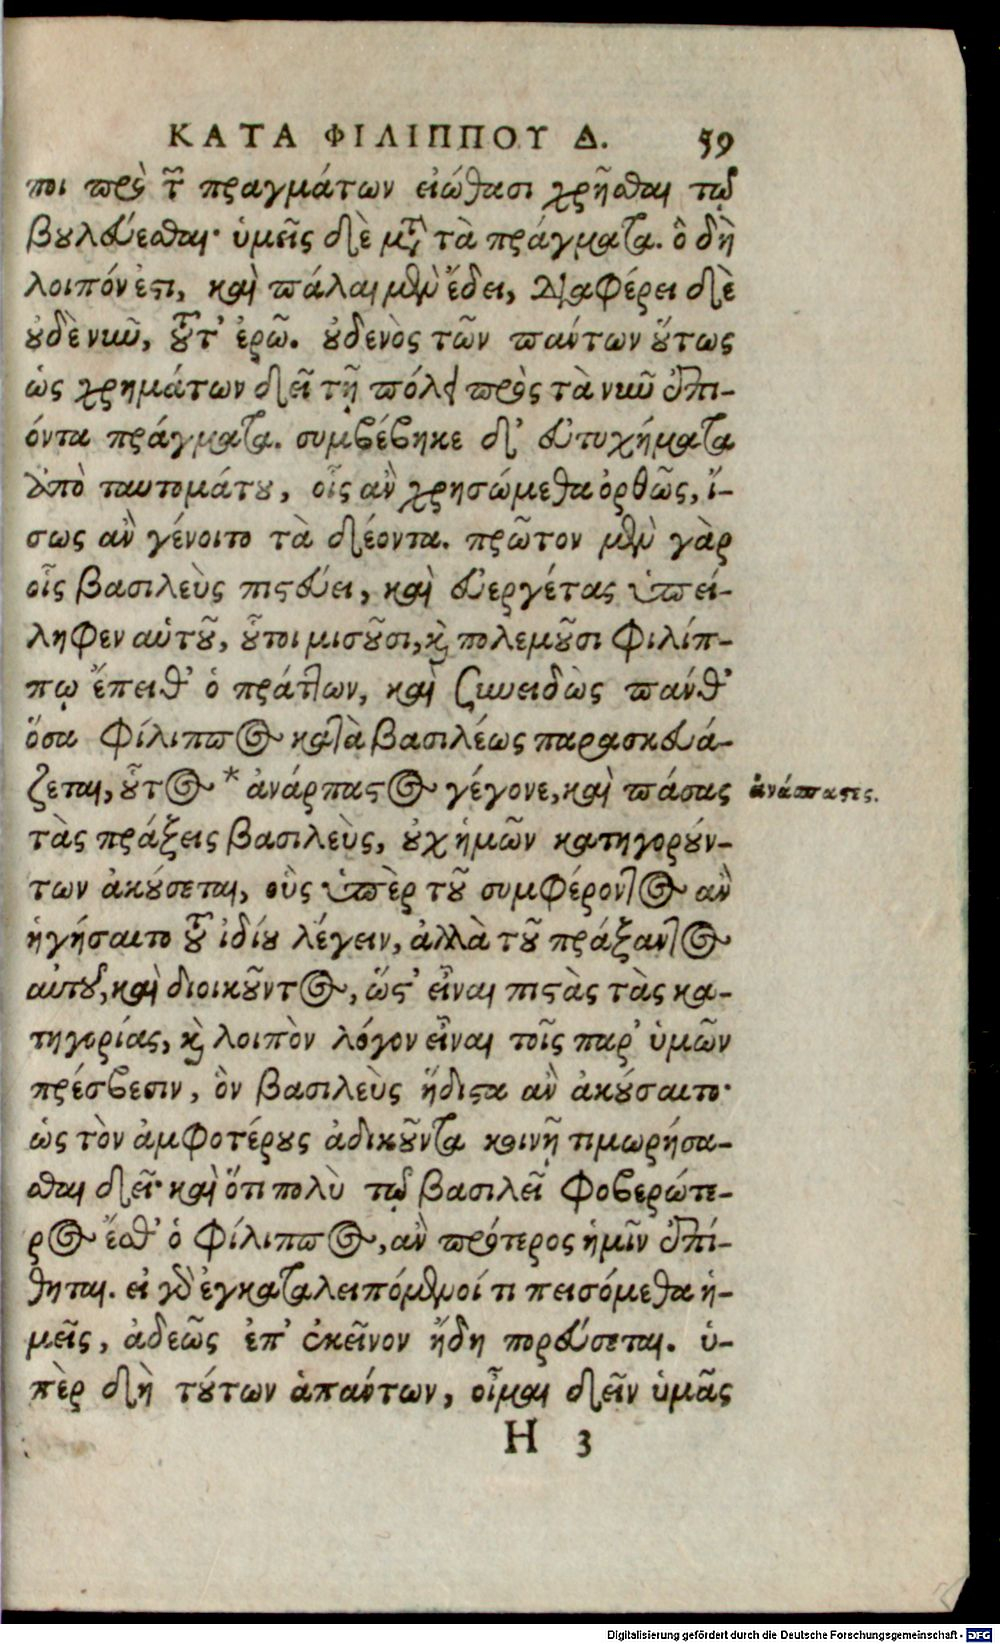 ΚΑΤΑ ΦΙΛΙΠΠΟΥ Δ. 59
ποι πρὸ τῶν πραγμάτων εἰώθασι χρῆσθαι τῷ
βουλεύεσθαι· ὑμεῖς δὲ μετὰ τὰ πράγματα. ὃ δὴ
λοιπόν ἐστι, καὶ πάλαι μὲν ἔδει, διαφέρει δὲ
οὐδὲ νῦν, τοῦτ' ἐρῶ. οὐδενὸς τῶν πάντων οὕτως
ὡς χρημάτων δεῖ τῇ πόλει πρὸς τὰ νῦν ἐπι-
όντα πράγματα. συμβέβηκε δ' εὐτυχήματα
ἀπὸ ταυτομάτου, οἷς ἂν χρησώμεθα ὀρθῶς, ἴ-
σως ἂν γένοιτο τὰ δέοντα. πρῶτον μὲν γὰρ
οἷς βασιλεὺς πιστεύει, καὶ εὐεργέτας ὑπεί-
ληφεν αὑτοῦ, οὗτοι μισοῦσι, καὶ πολεμοῦσι Φιλίπ-
πῳ ἔπειθ' ὁ πράττων, καὶ συνειδὼς πάνθ'
ὅσα Φίλιππος κατὰ βασιλέως παρασκευά-
ζεται, οὗτος * ἀνάρπαστος γέγονε, καὶ πάσας ἀνάσπαστς.
τὰς πράξεις βασιλεὺς, οὐχ ἡμῶν κατηγορούν-
των ἀκούσεται, οὓς ὑπὲρ τοῦ συμφέροντος ἂν
ἡγήσαιτο τοῦ ἰδίου λέγειν, ἀλλὰ τοῦ πράξαντος
αὐτοῦ, καὶ διοικοῦντος, ὥστ' εἶναι πιστὰς τὰς κα-
τηγορίας, καὶ λοιπὸν λόγον εἶναι τοῖς παρ' ὑμῶν
πρέσβεσιν, ὃν βασιλεὺς ἥδιστα ἂν ἀκούσαιτο·
ὡς τὸν ἀμφοτέρους ἀδικοῦντα κοινῇ τιμωρήσα-
σθαι δεῖ· καὶ ὅτι πολὺ τῷ βασιλεῖ φοβερώτε-
ρος ἔσθ' ὁ Φίλιππος, ἂν πρότερος ἡμῖν ἐπί-
θηται. εἰ γὰρ ἐγκαταλειπόμενοί τι πεισόμεθα ἡ-
μεῖς, ἀδεῶς ἐπ' ἐκεῖνον ἤδη πορεύσεται. ὑ-
πὲρ δὴ τούτων ἁπάντων, οἶμαι δεῖν ὑμᾶς
Η 3
Digitalisierung gefördert durch die Deutsche Forschungsgemeinschaft - DFG